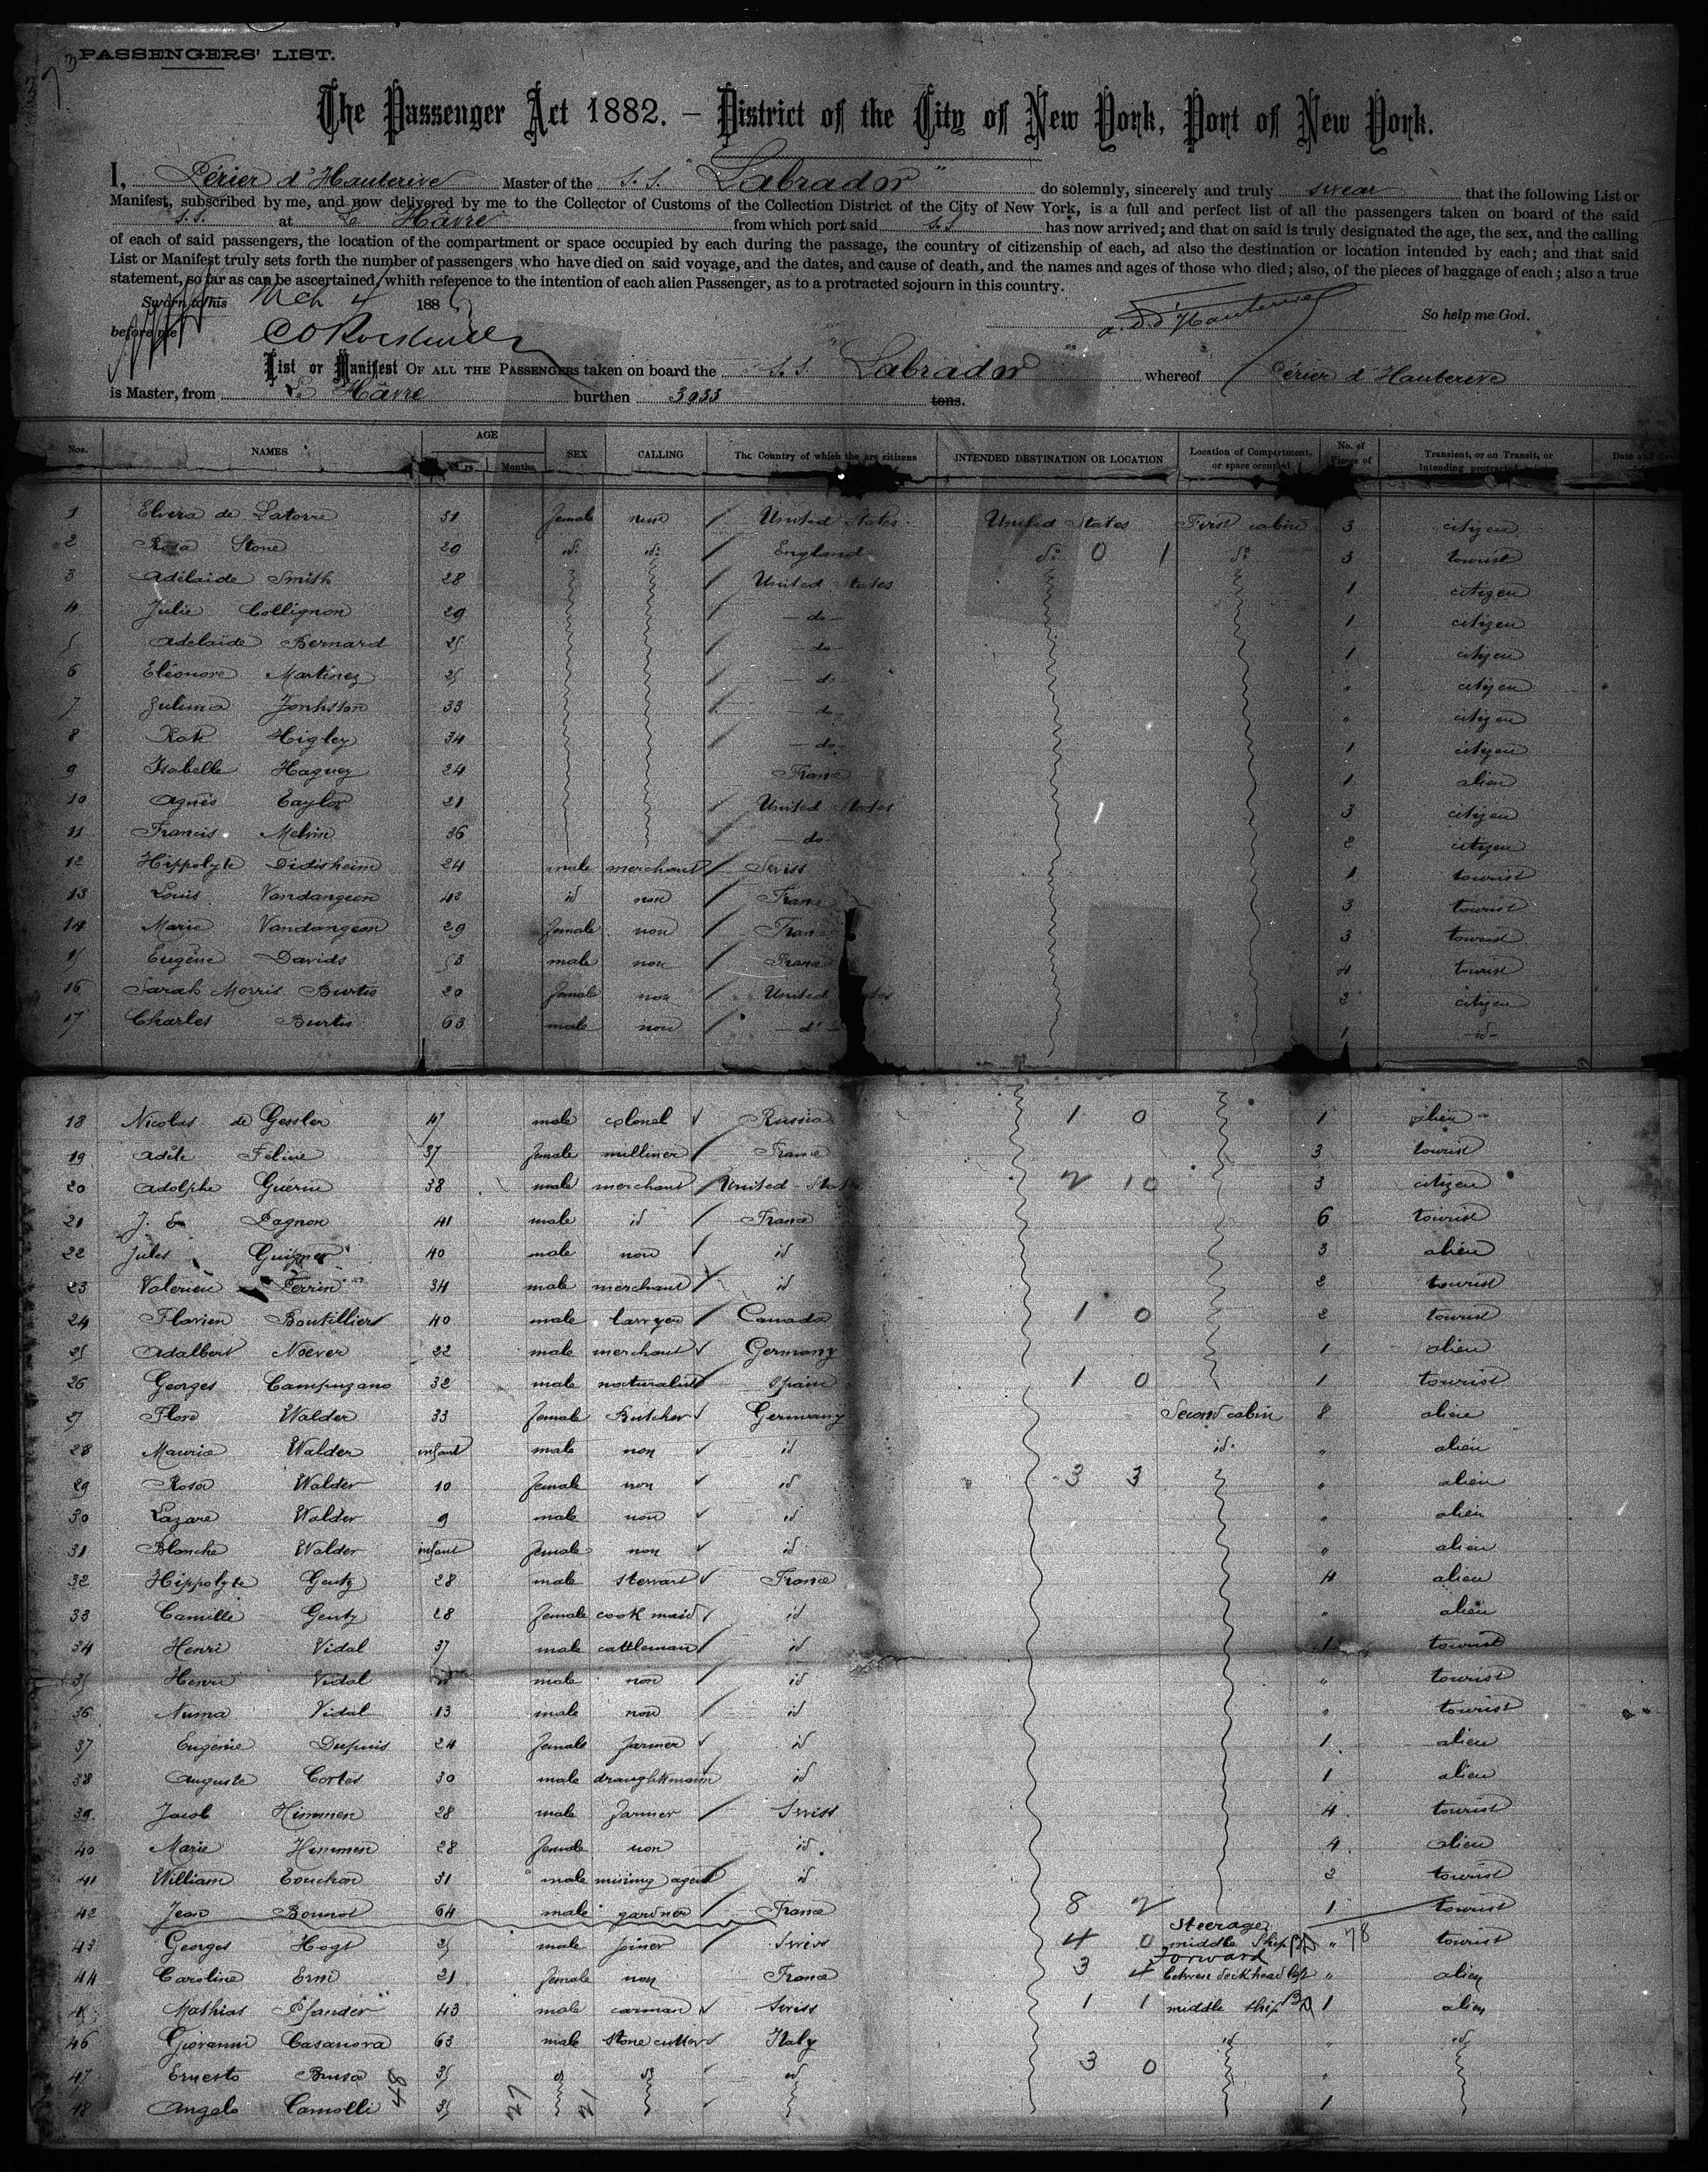 PASSENGERS' LIST.
The Passenger Act 1882. — District of the City of New York, Port of New York.
I, Périer d'Hauterive Master of the S.S. "Labrador" do solemnly, sincerely and truly swear that the following List or
Manifest, subscribed by me, and now delivered by me to the Collector of Customs of the Collection District of the City of New York, is a full and perfect list of all the passengers taken on board of the said
S.S. at Le Hâvre from which port said S.S. has now arrived; and that on said is truly designated the age, the sex, and the calling
of each of said passengers, the location of the compartment or space occupied by each during the passage, the country of citizenship of each, ad also the destination or location intended by each; and that said
List or Manifest truly sets forth the number of passengers who have died on said voyage, and the dates, and cause of death, and the names and ages of those who died; also, of the pieces of baggage of each; also a true
statement, so far as can be ascertained, whith reference to the intention of each alien Passenger, as to a protracted sojourn in this country.
Sworn to this Mch 4 188
before me So help me God.
List or Manifest OF ALL THE PASSENGERS taken on board the S.S. "Labrador" whereof Périer d'Hauterive
is Master, from Le Hâvre burthen 3033 tons.
Nos. NAMES AGE Years Months SEX CALLING The Country of which the are citizens INTENDED DESTINATION OR LOCATION Location of Compartment, or space occupied No. of Pieces of Transient, or on Transit, or Intending protracted
1 Elvira de Latorre 31 female none United States United States First cabin 3 citizen
2 Rosa Stone 29 id: id: England do 0 1 do 3 tourist
3 Adélaïde Smith 28 United States 1 citizen
4 Julie Collignon 29 - do - 1 citizen
5 Adelaïde Bernard 25 - do - 1 citizen
6 Eléonore Martinez 25 - do - " citizen
7 Julima Jonhston 33 - do - " citizen
8 Kate Higley 34 - do - 1 citizen
9 Isabelle Haguez 24 France 1 alien
10 Agnès Taylor 21 United States 3 citizen
11 Francis Melvin 36 - do - 2 citizen
12 Hippolyte Didisheim 24 male merchant Swiss 1 tourist
13 Louis Vandangeon 43 id non France 3 tourist
14 Marie Vandangeon 29 female non France 3 tourist
15 Eugène Davids 53 male non France 4 tourist
16 Sarah Morris Burtis 20 female non United States 2 citizen
17 Charles Burtis 63 male non - do - 1 - id -
18 Nicolas de Gessler 47 male colonel Russia 1 0 1 alien
19 Adèle Félicie 37 female milliner France 3 tourist
20 Adolphe Guérin 38 male merchant United States 2 10 3 citizen
21 J. Pagnon 41 male id France 6 tourist
22 Jules 40 male non id 3 alien
23 Valérien Perrin 34 male merchant id 2 tourist
24 Flavien Boutillier 40 male lawyer Canada 1 0 2 tourist
25 Adalbert Noever 22 male merchant Germany 1 alien
26 Georges Campuzano 32 male naturalist Spain 1 0 1 tourist
27 Flore Walder 33 female Butcher Germany Second cabin 8 alien
28 Maurice Walder infant male non id id. " alien
29 Rosa Walder 10 female non id 3 3 " alien
30 Lazare Walder 9 male non id " alien
31 Blanche Walder infant female non id " alien
32 Hippolyte Genty 28 male stewart France 4 alien
33 Camille Genty 28 female cook maid id " alien
34 Henri Vidal 37 male cattleman id 1 tourist
35 Henri Vidal male non id " tourist
36 Numa Vidal 13 male non id " tourist
37 Eugenie Dupuis 24 female farmer id 1 alien
38 Auguste Cortes 30 male draughtsmann id 1 alien
39 Jacob Himmen 28 male farmer Swiss 4 tourist
40 Marie Himmen 28 female non id 4 alien
41 William Touchon 31 male mining agent id 2 tourist
42 Jean Bonnot 64 male gardner France 8 2 1 tourist
43 Georges Hogt 25 male joiner Swiss 4 0 Steerage middle Ship " 78 tourist
44 Caroline Erni 21 female non France 3 4 Forward between deck head " alien
45 Mathias Pfander 43 male carman Swiss 1 1 middle ship 1 alien
46 Giovanni Casanova 63 male stone cutter Italy id " id
47 Ernesto Brusa 35 do do id 3 0 "
48 Angelo Camolli 35 1
48 27 21